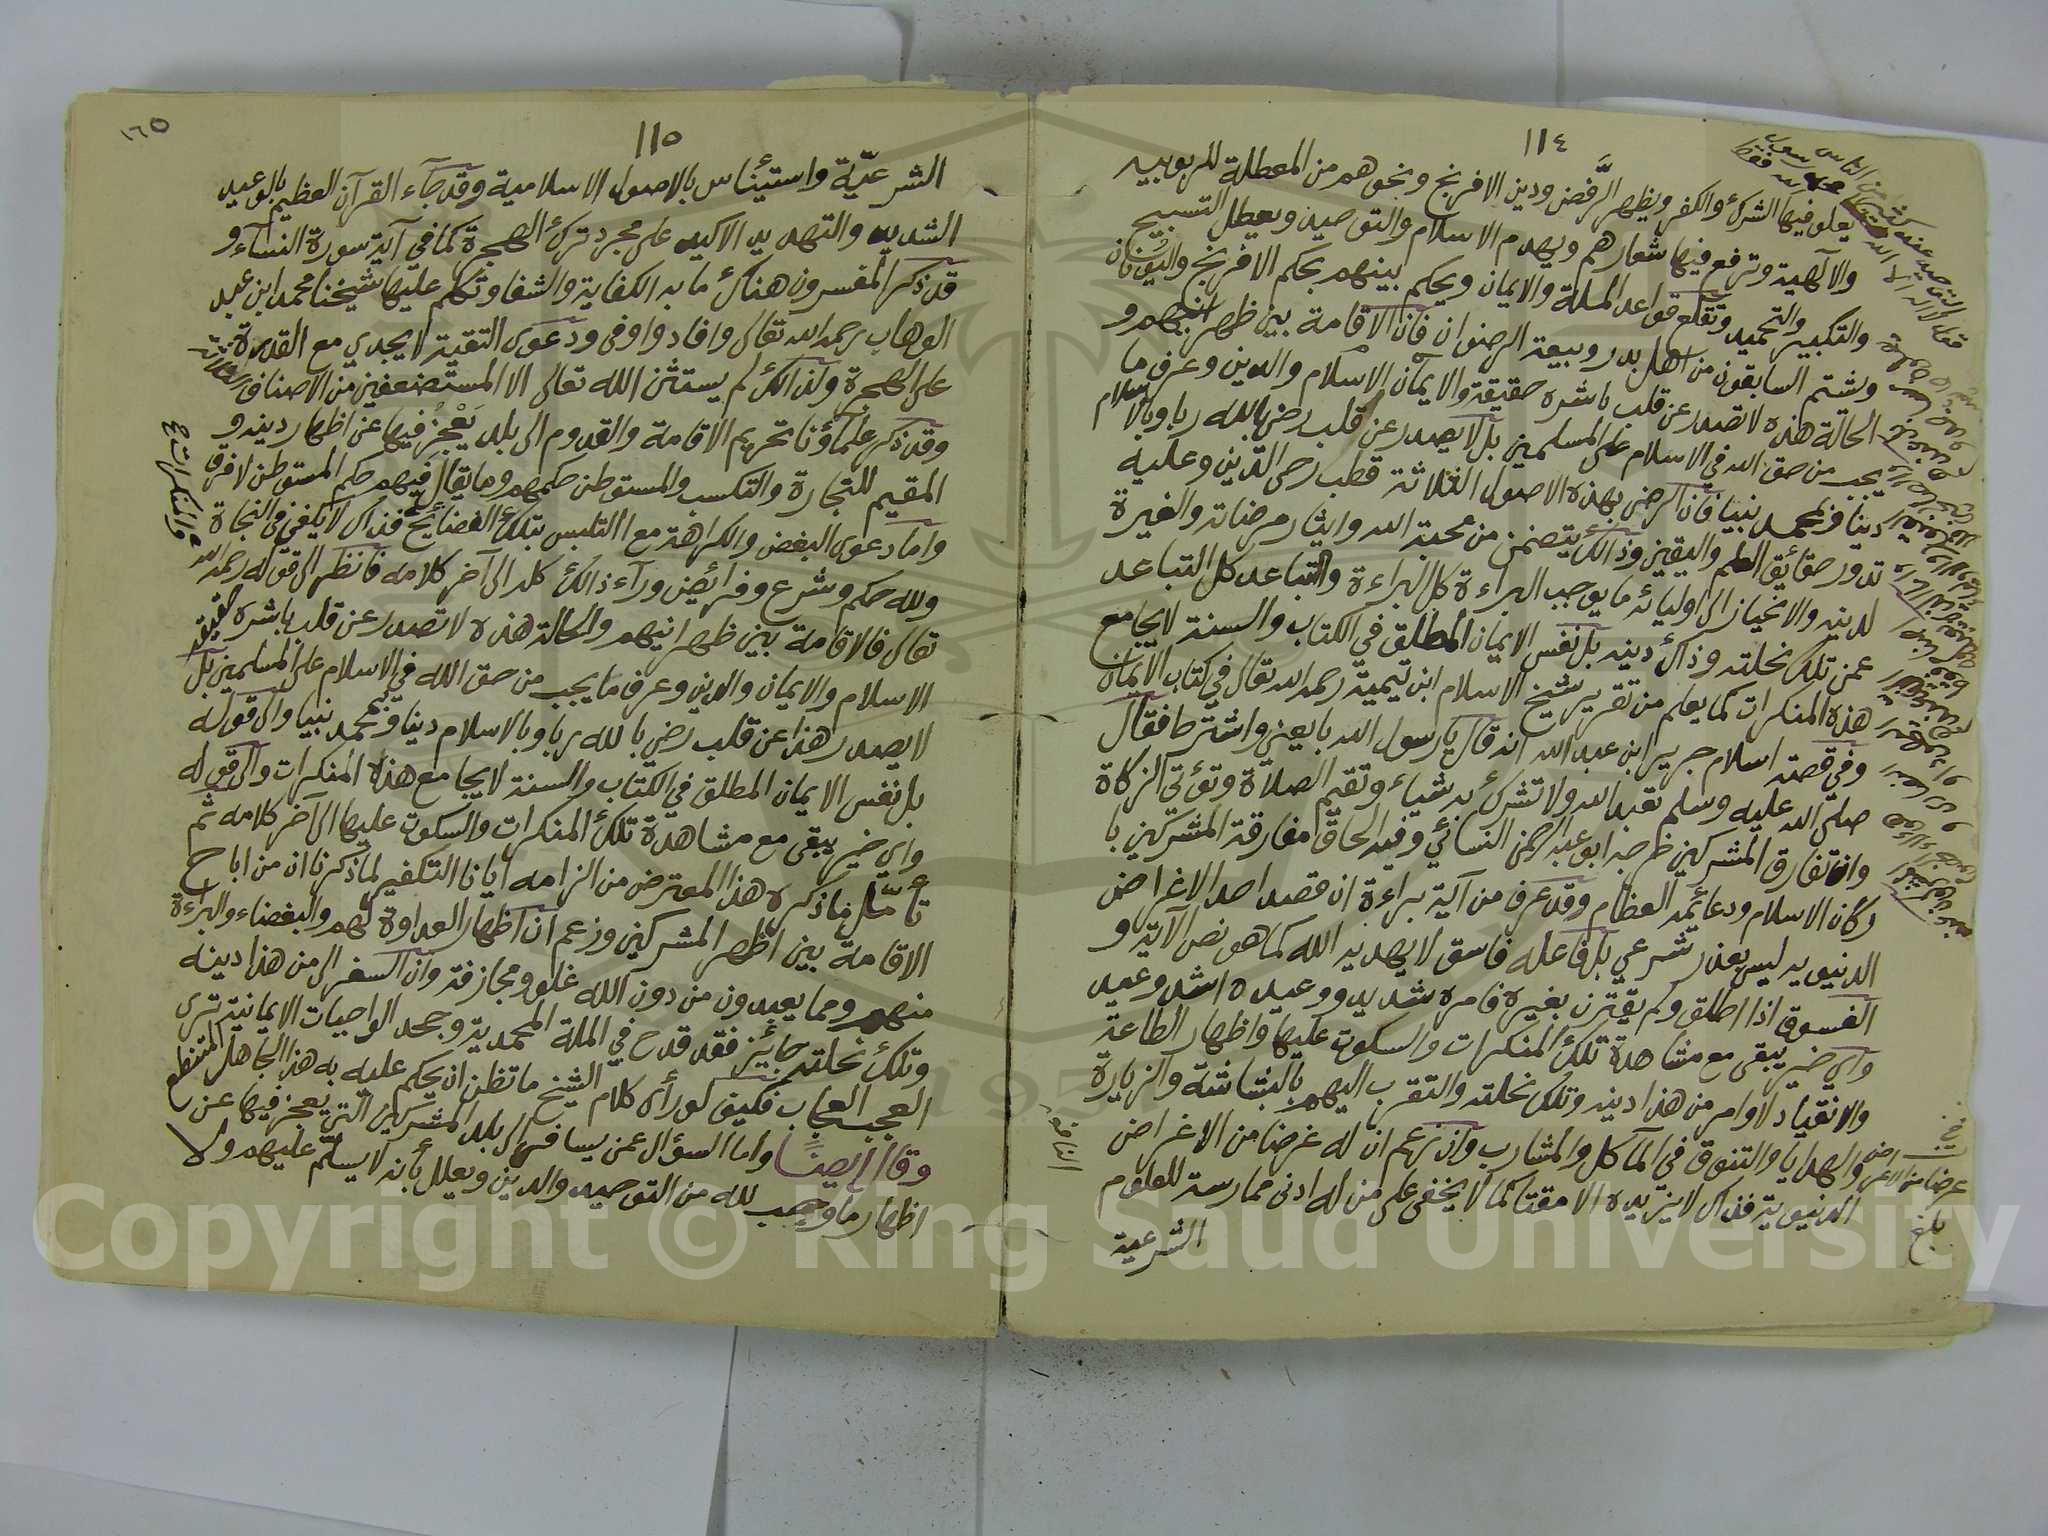 ١١٤
يعلو فيها الشرك والكفر ويظهر الرَّفض ودين الافرنج ونحوهم من المعطلة للربوبيه
والآلهية وترفع فيها شعارهم ويهدم الاسلام والتوحيد ويعطل التسبيح
والتكبير والتحميد وتقلع قواعد الملة والايمان ويحكم بينهم بحكم الافرنج واليونان
ويشتم السابقون من اهل بدر وبيعة الرضوان فان الاقامة بين ظهرانيهم و
الحالة هذه لا تصدر عن قلب باشره حقيقة الاسلام والايمان والدين وعرف ما
يجب من حق الله في الاسلام على المسلمين بل لا يصدر عن قلب رضي بالله ربا وبالاسلام
دينا وبمحمد نبيا فان الرضى بهذه الاصول الثلاثة قطب رحى الدين وعليه
تدور حقائق العلم واليقين وذالك يتضمن من محبة الله وايثار مرضاته والغيرة
لدينه والانحياز الى اوليائه ما يوجب البراءة كل البراءة والتباعد كل التباعد
عمن تلك نحلته وذاك دينه بل نفس الايمان المطلق في الكتاب والسنة لا يجامع
هذه المنكرات كما يعلم من تقرير شيخ الاسلام ابن تيمية رحمه الله تعالى في كتاب الايمان
وفي قصة اسلام جرير ابن عبد الله انه قال يا رسول الله بايعني واشترط فقال
صلى الله عليه وسلم تعبد الله ولا تشرك به شياء وتقيم الصلاة وتؤتي الزكاة
وان تفارق المشركين خرجه ابو عبد الرحمن النسائي وفيه الحاق مفارقة المشركين با
ركان الاسلام ودعائمه العظام وقد عرف من آية براءة ان قصد احد الاغراض
الدنيويه ليس بعذر شرعي بل فاعله فاسق لا يهديه الله كما هو نص الآية و
الفسوق اذا اطلق ولم يقترن بغيره فامره شديد ووعيده اشد وعيد
واي خير يبقى مع مشاهدة تلك المنكرات والسكوت عليها واظهار الطاعة
والانقياد لاوامر من هذا دينه وتلك نحلته والتقرب اليهم بالبشاشة والزيارة
والهدايا والتنوق في المآكل والمشارب وان زعم ان له غرضا من الاغراض
الدنيوية فذاك لا يزيده الا مقتا كما لا يخفى على من له ادنى ممارسة للعلوم
الشرعية
بلغ
١١٥
١٦٥
الشرعيّة واستيئاس بالاصول الاسلامية وقد جآء القرآن العظيم بالوعيد
الشديد والتهديد الاكيد على مجرد ترك الهجرة كما في آية سورة النسآء و
قد ذكر المفسرون هناك ما به الكفاية والشفا وتكلم عليها شيخنا محمد ابن عبد
الوهاب رحمه الله تعالى وافاد واوفى ودعوى التقية لا يجدي مع القدرة
على الهجرة ولذالك لم يستثن الله تعالى الا المستضعفين من الاصناف الثلاثة
وقد ذكر علماؤنا تحريم الاقامة والقدوم الى بلد يَعْجُز فيها عن اظهار دينه و
المقيم للتجارة والتكسب والمستوطن حكمهم وما يقال فيهم حكم المستوطن لا فرق
واما دعوى البغض والكراهة مع التلبس بتلك الفضائح فذاك لا يكفي في النجاة
والمنكرات صح
ولله حكم وشرع وفرائض ورآء ذالك كله الى آخر كلامه فانظر الى قوله رحمه الله
تعالى فالاقامة بين ظهرانيهم والحالة هذه لا تصدر عن قلب باشره حقيقة
الاسلام والايمان والدين وعرف ما يجب من حق الله في الاسلام على المسلمين بل
لا يصدر هذا عن قلب رضي بالله ربا وبالاسلام دينا وبمحمد نبيا والى قوله
بل نفس الايمان المطلق في الكتاب والسنة لا يجامع هذه المنكرات والى قوله
واي خير يبقى مع مشاهدة تلك المنكرات والسكوت عليها الى آخر كلامه ثم
تأمّل ما ذكره هذا المعترض من الزامه ايانا التكفير لما ذكرنا ان من اباح
الاقامة بين اظهر المشركين وزعم ان اظهار العداوة لهم والبغضاء والبرآءة
منهم ومما يعبدون من دون الله غلو ومجازفة وان السفر الى من هذا دينه
وتلك نحلته جائز فقد قدح في الملة المحمدية وجحد الواجبات الايمانية ترى
العجب العجاب فكيف لو رأى كلام الشيخ ما تظن ان يحكم عليه به هذا الجاهل المتنطع
وقال ايضًا واما السؤال عمن يسافر الى بلد المشركين التي يعجز فيها عن
اظهار ما وجب لله من التوحيد والدين ويعلل بأنه لا يسلّم عليهم ولا